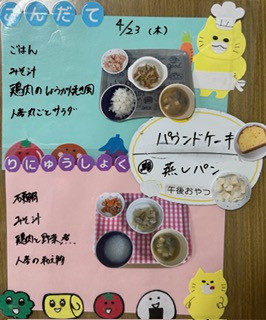 こんだて
4/23 (木)
ごはん
みそ汁
鶏肉のしょうが焼き風
人参丸ごとサラダ
パウンドケーキ
蒸しパン
午後おやつ
りにゅうしょく
みそ汁
鶏肉と野菜煮
人参の和え物